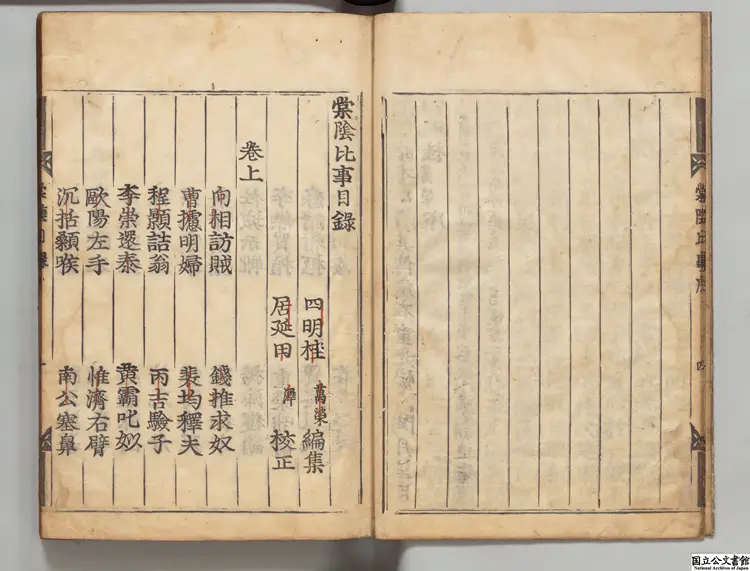 棠陰比事目錄
四明桂萬榮編集
居延田澤校正
卷上
向相訪賊 錢推求奴
曹攄明婦 裴均釋夫
程顥詰翁 丙吉驗子
李崇還泰 黃霸叱姒
歐陽左手 惟濟右臂
沉括顙喉 南公塞鼻
棠陰比事序
四
国立公文書館
National Archives of Japan